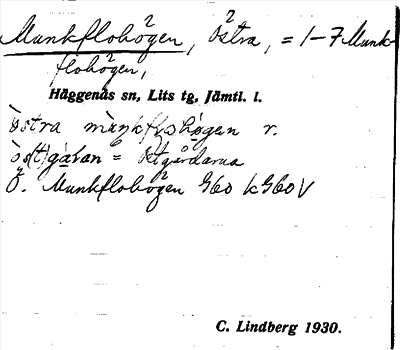 Munkflohögen, Östra, = 1–7 Munk-
flohögen,
Häggenås sn, Lits tg, Jämtl. l.
östra muŋkfɺohögen r.
ös(t)gá̱ɹan = Östgårdarna
Ö. Munkflohögen G60 kG60V
C. Lindberg 1930.